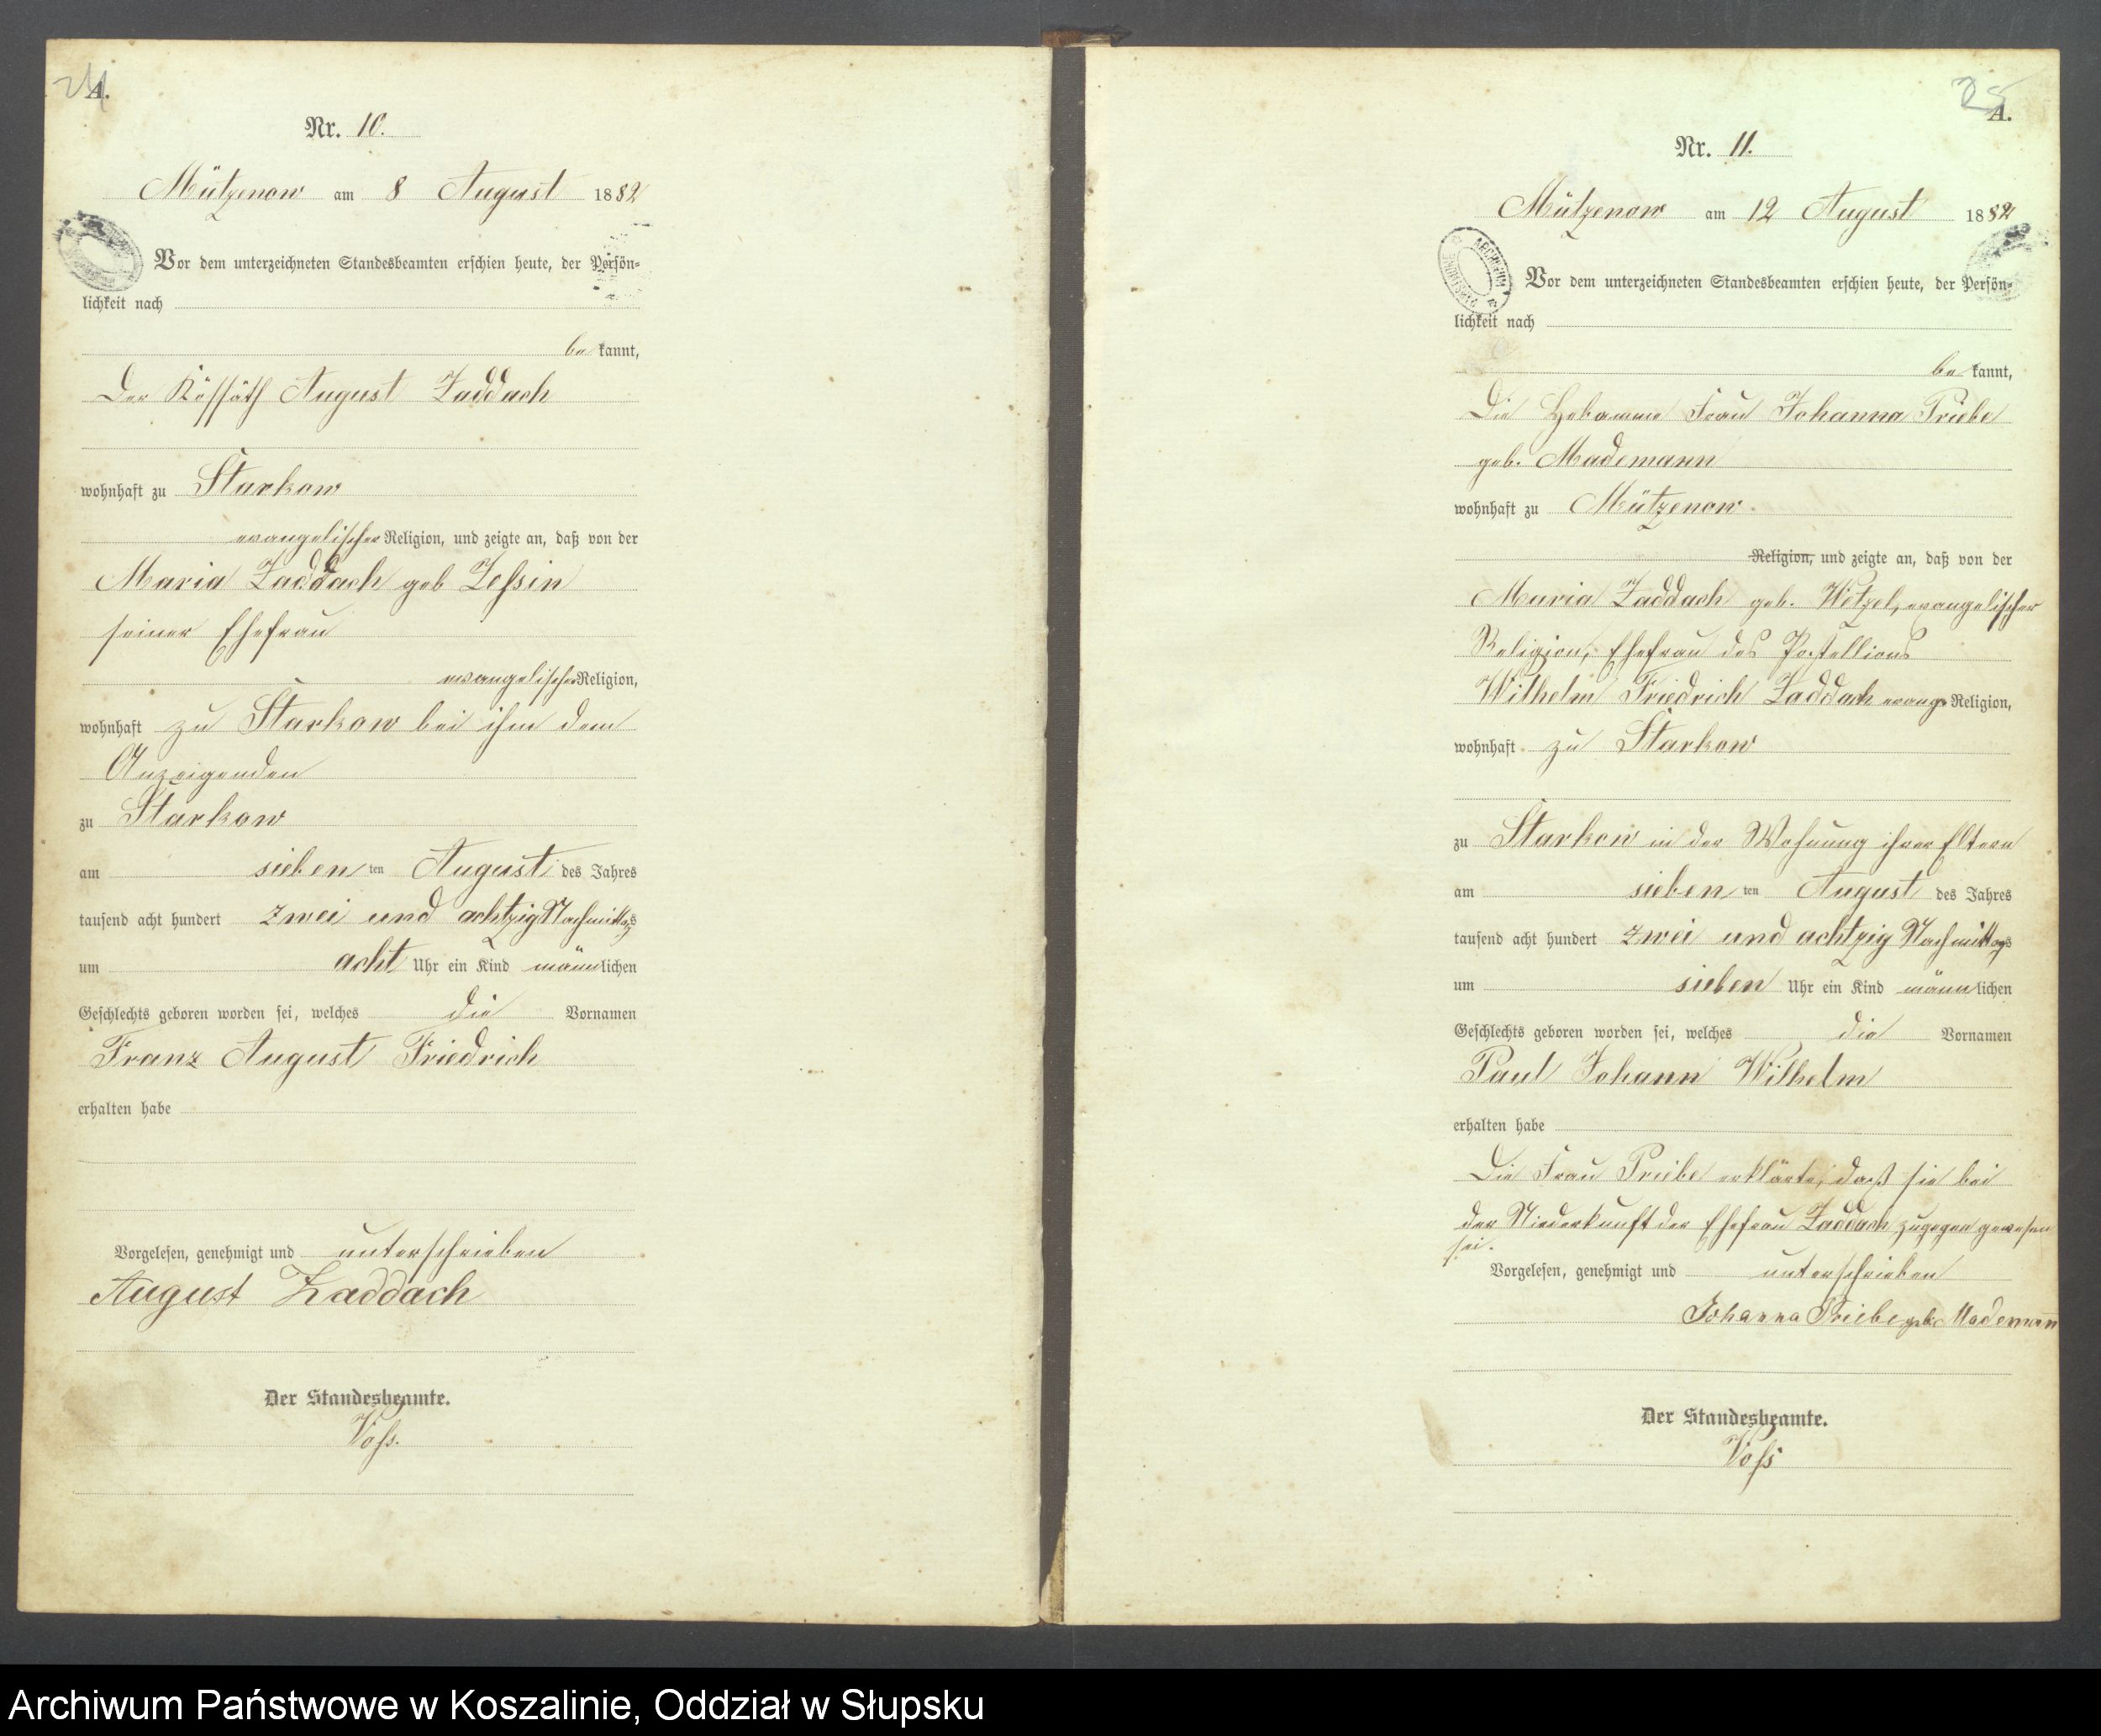 24
A.
Nr. 10.
Mützenow am 8 August 1882
Vor dem unterzeichneten Standesbeamten erschien heute, der Persön-
lichkeit nach
be kannt,
Der Kossäth August Zaddach
wohnhaft zu Starkow
evangelischer Religion, und zeigte an, daß von der
Maria Zaddach geb Zessin
seiner Ehefrau
evangelischer Religion,
wohnhaft zu Starkow bei ihm dem
Anzeigenden
zu Starkow
am sieben ten August des Jahres
tausend acht hundert zwei und achtzig Nachmittags
um acht Uhr ein Kind männlichen
Geschlechts geboren worden sei, welches die Vornamen
Franz August Friedrich
erhalten habe
Vorgelesen, genehmigt und unterschrieben
August Zaddach
Der Standesbeamte.
Voß.
25
A.
Nr. 11.
Mützenow am 12 August 1882
ARCHIWUM
Vor dem unterzeichneten Standesbeamten erschien heute, der Persön-
lichkeit nach
be kannt,
Die Hebamme Frau Johanna Priebe
geb. Mademann
wohnhaft zu Mützenow.
Religion, und zeigte an, daß von der
Maria Zaddach geb. Wetzel, evangelischer
Religion, Ehefrau des Postellions
Wilhelm Friedrich Zaddach evang. Religion,
wohnhaft zu Starkow
zu Starkow in der Wohnung ihrer Eltern
am sieben ten August des Jahres
tausend acht hundert zwei und achtzig Nachmittags
um sieben Uhr ein Kind männlichen
Geschlechts geboren worden sei, welches die Vornamen
Paul Johann Wilhelm
erhalten habe
Die Frau Priebe erklärte, daß sie bei
der Niederkunft der Ehefrau Zaddach zugegen gewesen
sei.
Vorgelesen, genehmigt und unterschrieben
Johanna Priebe geb. Mademann
Der Standesbeamte.
Voß
Archiwum Państwowe w Koszalinie, Oddział w Słupsku